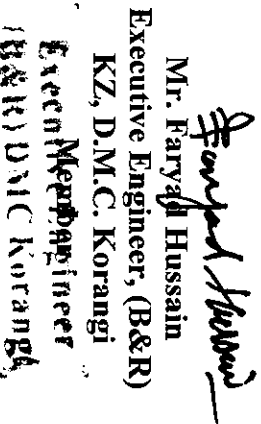 Faryad Hussain
Mr. Faryad Hussain
Executive Engineer, (B&R)
KZ, D.M.C. Korangi
Member
Executive Engineer
(B&R) DMC Korangi